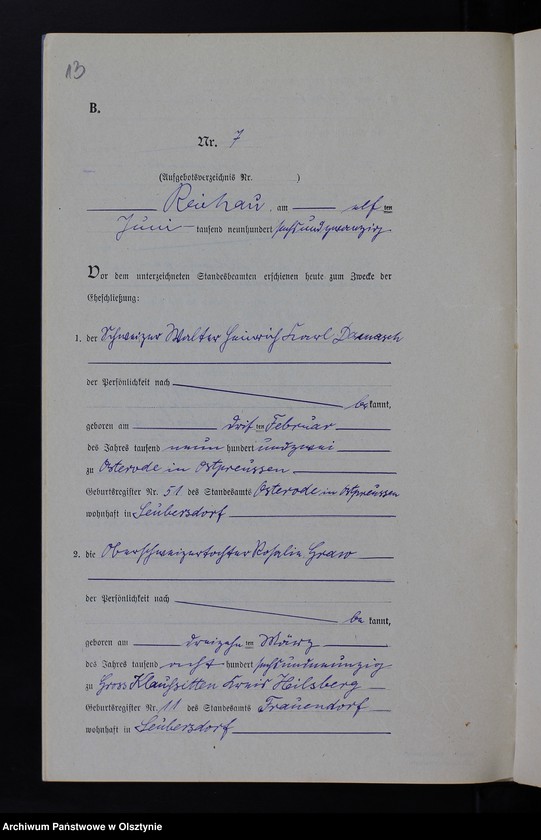 13
B.
Nr. 7
(Aufgebotsverzeichnis Nr. )
Reichau, am elf ten
Juni tausend neunhundert sechsundzwanzig
Vor dem unterzeichneten Standesbeamten erschienen heute zum Zwecke der
Eheschließung:
1. der Schweizer Walter Heinrich Karl Damasch
der Persönlichkeit nach
be kannt,
geboren am drit ten Februar
des Jahres tausend neun hundert undzwei
zu Osterode in Ostpreussen
Geburtsregister Nr. 51 des Standesamts Osterode in Ostpreussen
wohnhaft in Leubersdorf
2. die Oberschweizertochter Rosalia Graw
der Persönlichkeit nach
be kannt,
geboren am dreizehn ten März
des Jahres tausend acht hundert sechsundneunzig
zu Gross Klaussitten Kreis Heilsberg
Geburtsregister Nr. 11 des Standesamts Frauendorf
wohnhaft in Leubersdorf
Archiwum Państwowe w Olsztynie